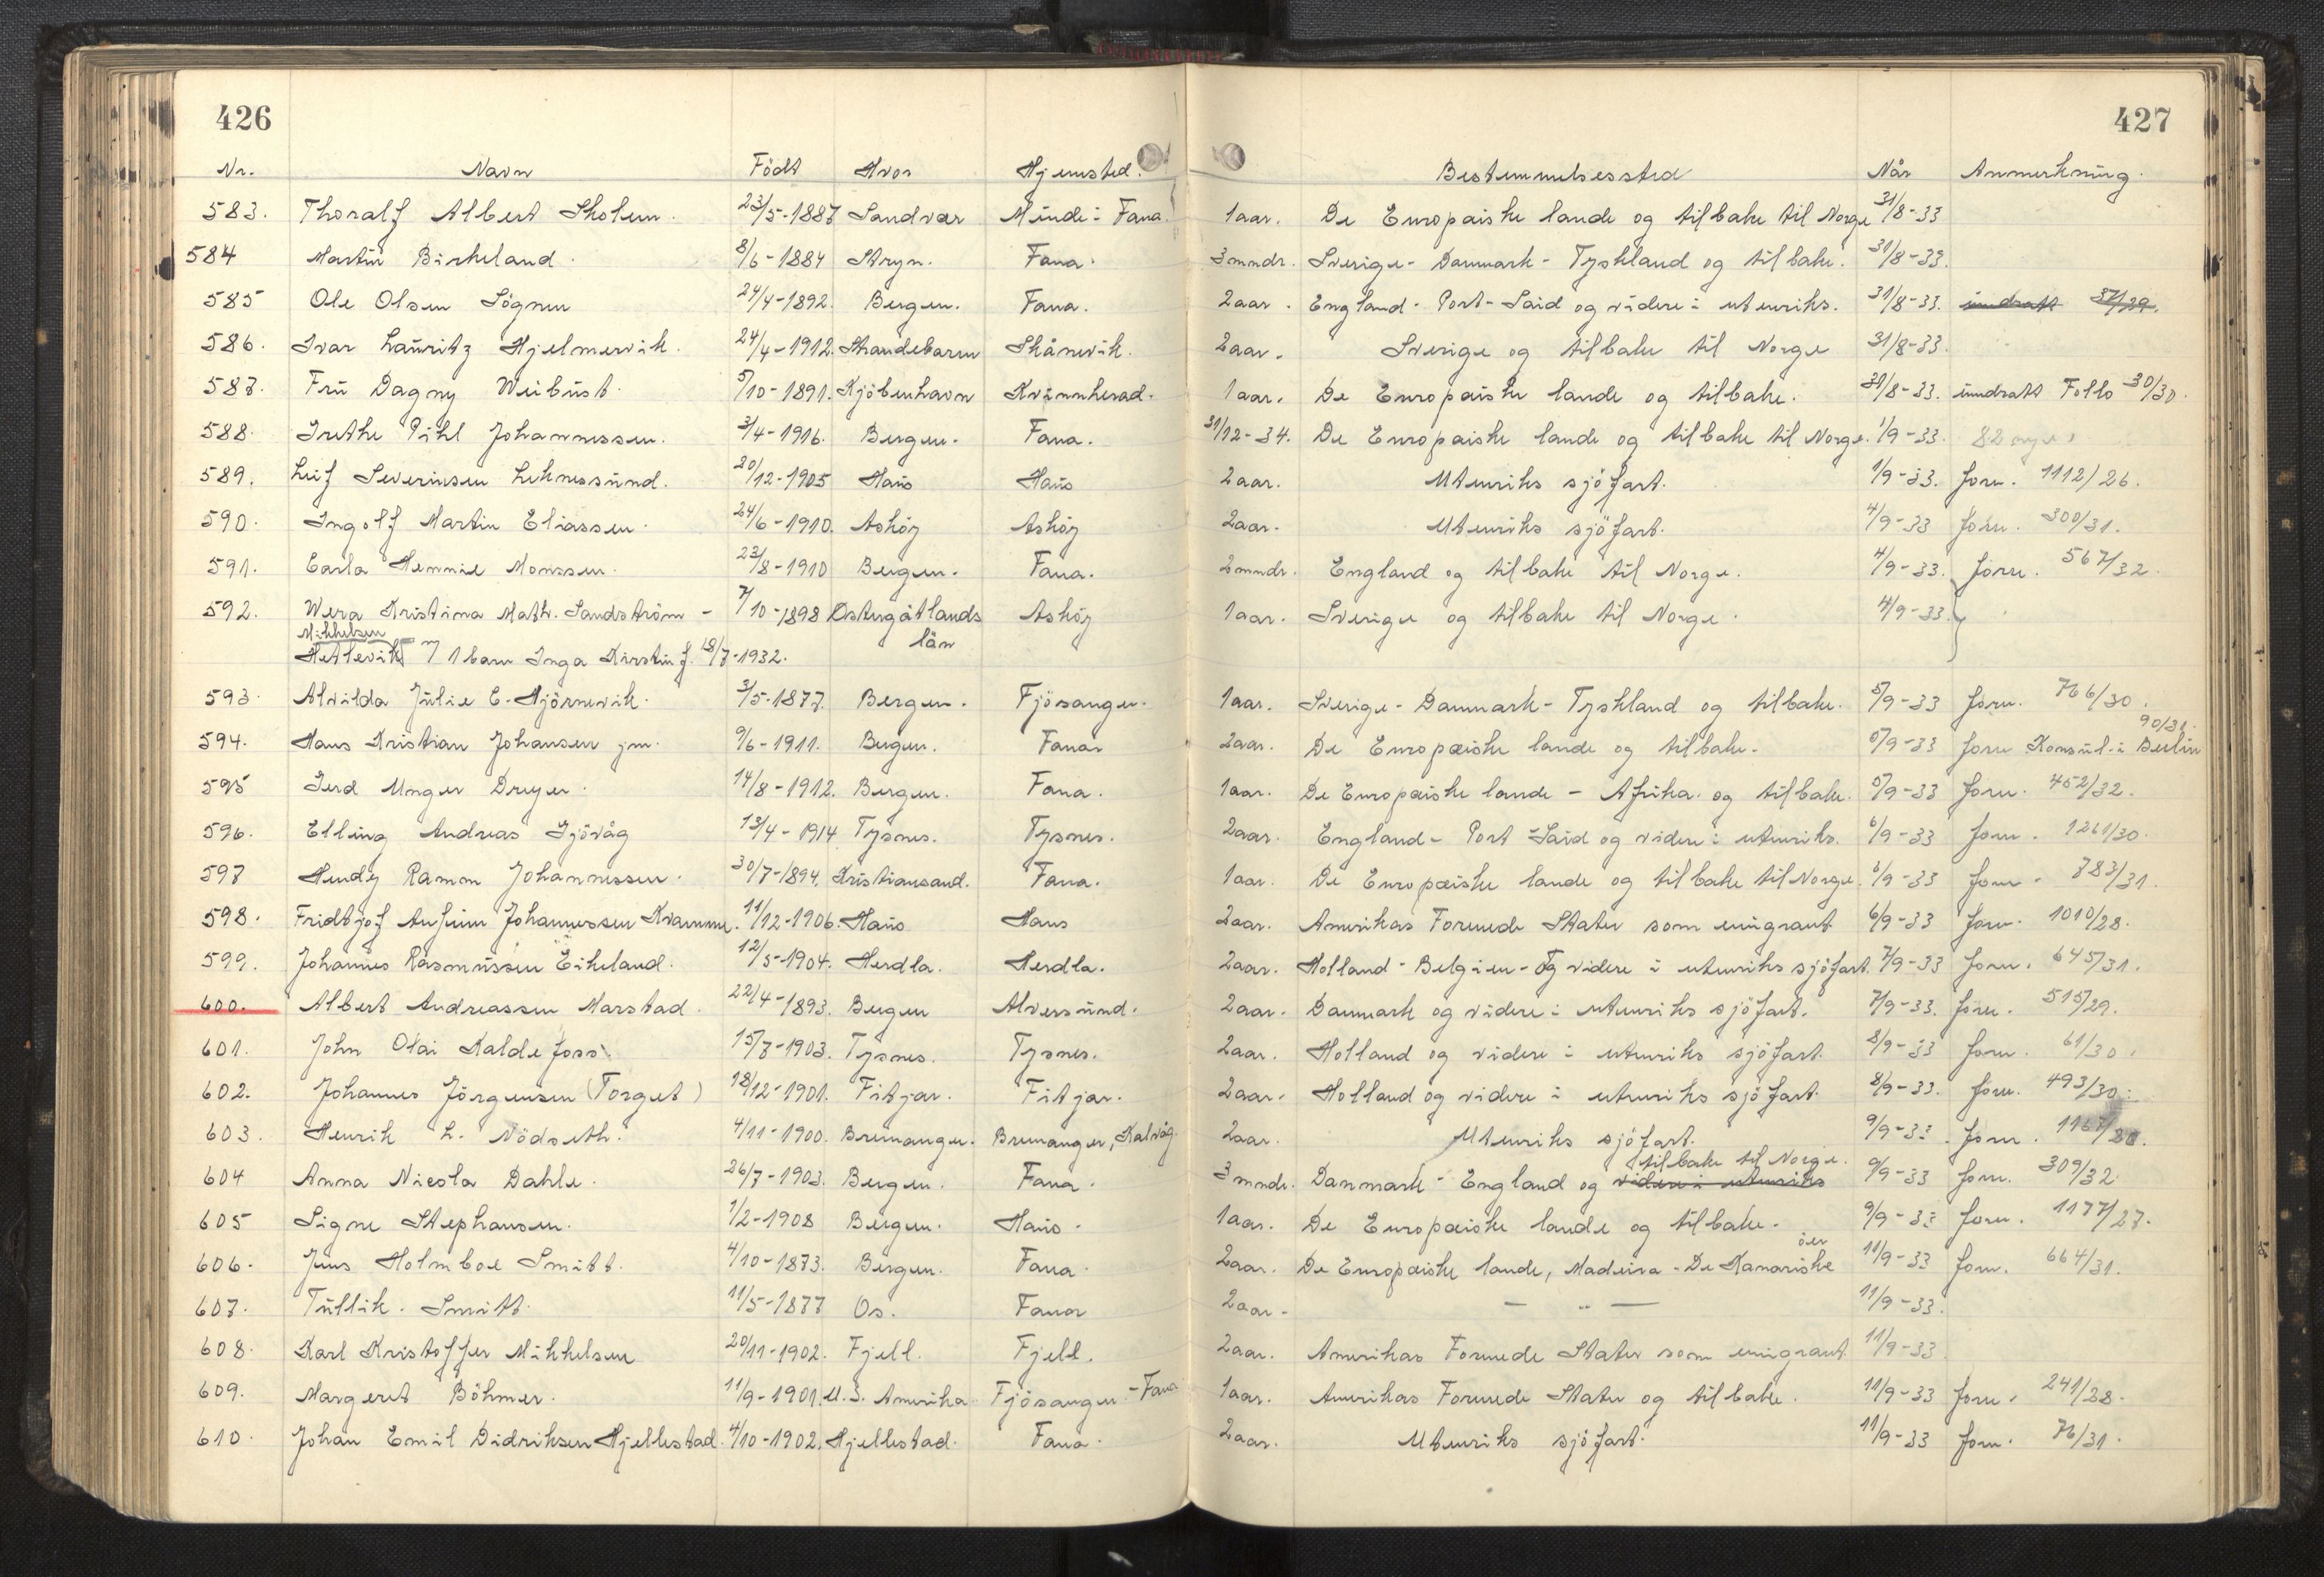 426
427
Nr. Navn Födt Hvor Hjemsted. Bestemmelsessted Når Anmerkning.
583. Thoralf Albert Skolem. 23/5-1887 Sandvær Minde i Fana. 1 aar. De Europæiske lande og tilbake til Norge 31/8-33
584 Martin Birkeland. 8/6-1884 Stryn. Fana. 3 mndr. Sverige - Danmark - Tyskland og tilbake. 31/8-33.
585 Ole Olsen Sögnen 24/4-1892. Bergen. Fana. 2 aar. England - Port-Said og videre i utenriks. 31/8-33. inndratt 37/29.
586. Ivar Lauritz Hjelmervik. 24/4-1912. Strandebarm Skånevik. 2 aar. Sverige og tilbake til Norge 31/8-33.
587. Fru Dagny Weibust. 5/10-1891. Kjöbenhavn Kvinnherad. 1 aar. De Europæiske lande og tilbake. 31/8-33. inndratt Follo 30/30.
588. Grethe Pihl Johannessen. 3/4-1916. Bergen. Fana. 31/12-34. De Europæiske lande og tilbake til Norge. 1/9-33.
589. Leif Severinsen Leknessund. 20/12-1905 Haus Haus 2 aar. Utenriks sjöfart. 1/9-33. forn. 1112/26.
590. Ingolf Martin Eliassen. 24/6-1910. Asköy Asköy 2 aar. Utenriks sjöfart. 4/9-33 forn. 300/31.
591. Carla Hennie Monssen. 23/8-1910 Bergen. Fana. 2 mndr. England og tilbake til Norge. 4/9-33. forn. 567/32.
592. Wera Kristina Math. Sandström - 7/10-1898 Östergötlands Asköy 1 aar. Sverige og tilbake til Norge. 4/9-33.
Mikkelsen län
Hetlevik m/ 1 barn Inga Kirstin f. 18/7-1932.
593. Alvilda Julie C. Hjörnevik. 3/5-1877. Bergen. Fjösanger. 1 aar. Sverige - Danmark - Tyskland og tilbake. 5/9-33 forn. 766/30.
90/31.
594. Hans Kristian Johansen jnr. 9/6-1911. Bergen. Fana 2 aar. De Europæiske lande og tilbake. 5/9-33 forn Konsul. i Berlin
595 Gerd Unger Dreyer. 14/8-1912. Bergen. Fana. 1 aar. De Europæiske lande - Afrika. og tilbake. 5/9-33 forn. 452/32.
596. Elling Andreas Gjövåg 13/4-1914 Tysnes. Tysnes. 2 aar. England - Port-Said og videre i utenriks. 6/9-33 forn. 1261/30.
597 Hendy Ramm Johannessen. 30/7-1894. Kristiansand. Fana. 1 aar. De Europæiske lande og tilbake til Norge. 6/9-33 forn. 783/31.
598. Fridtjof Anfinn Johannessen Kvamme. 11/12-1906. Haus Haus 2 aar. Amerikas Forenede Stater som emigrant. 6/9-33 forn. 1010/28.
599. Johannes Rasmussen Eikeland. 12/5-1904. Herdla. Herdla. 2 aar. Holland - Belgien - Og videre i utenriks sjöfart. 7/9-33 forn. 645/31.
600. Albert Andreassen Marstad. 22/4-1893. Bergen Alversund. 2 aar. Danmark og videre i utenriks sjöfart. 7/9-33. forn. 515/29.
601. John Olai Kaldefoss. 15/7-1903. Tysnes. Tysnes. 2 aar. Holland og videre i utenriks sjöfart. 8/9-33 forn. 61/30.
602. Johannes Jörgensen (Torget) 18/12-1901. Fitjar. Fitjar. 2 aar. Holland og videre i utenriks sjöfart. 8/9-33. forn. 493/30.
603. Henrik L. Nödseth. 4/11-1900. Bremanger. Bremanger, Kalvåg. 2 aar. Utenriks sjöfart. 9/9-33. forn.
tilbake til Norge.
604 Anna Nicola Dahle. 26/7-1903. Bergen. Fana. 3 mndr. Danmark - England og videre i utenriks 9/9-33 forn. 309/32
605 Signe Stephansen. 1/2-1908 Bergen. Haus. 1 aar. De Europæiske lande og tilbake. 9/9-33 forn. 1177/27.
öer
606. Jens Holmboe Smitt. 4/10-1873. Bergen. Fana. 2 aar. De Europæiske lande, Madeira - De Kanariske 11/9-33 forn. 664/31.
607. Tullik. Smitt. 11/5-1877 Os. Fana 2 aar. — " — 11/9-33.
608. Karl Kristoffer Mikkelsen 20/11-1902. Fjell. Fjell. 2 aar. Amerikas Forenede Stater som emigrant. 11/9-33
609. Margeret Böhmer. 11/9-1901. U.S. Amerika Fjösanger - Fana 1 aar. Amerikas Forenede Stater og tilbake. 11/9-33 forn. 241/28.
610. Johan Emil Didriksen Hjellestad. 4/10-1902. Hjellestad. Fana. 2 aar. Utenriks sjöfart. 11/9-33 forn. 76/31.